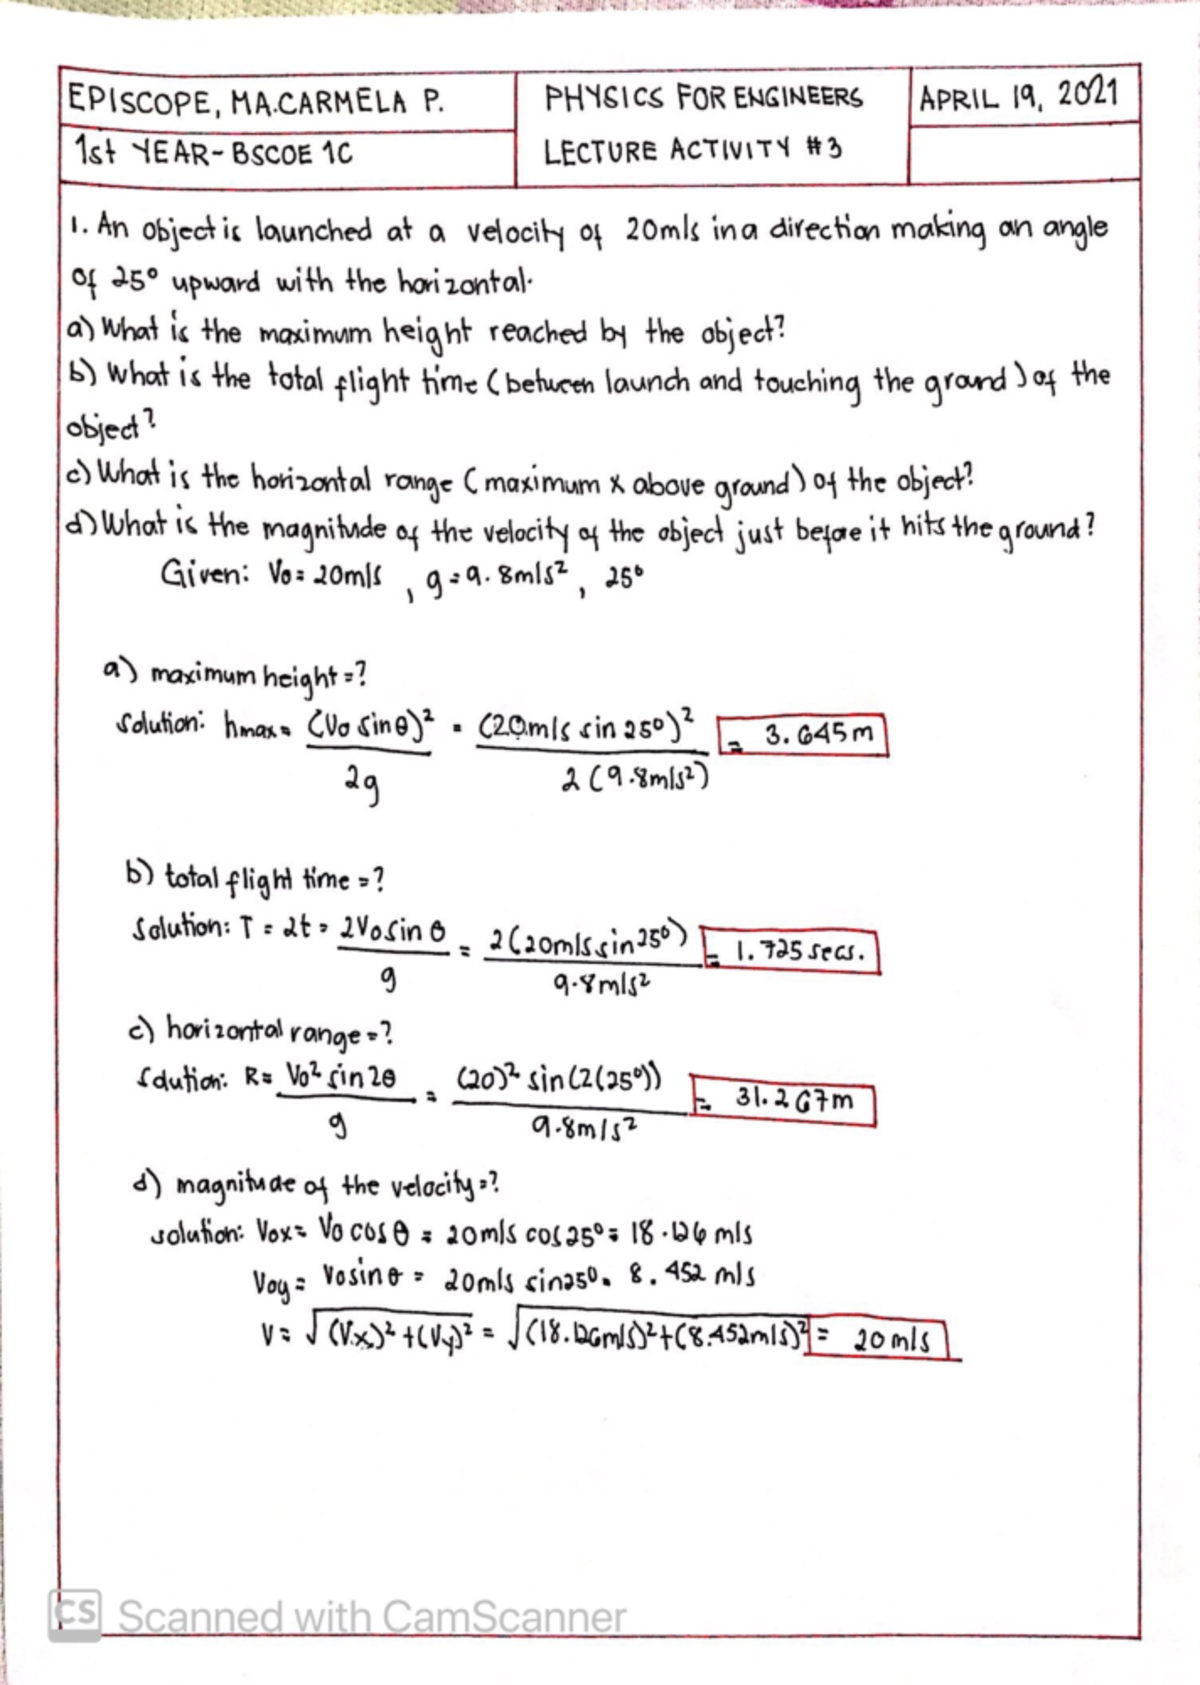 EPISCOPE, MA.CARMELA P.
PHYSICS FOR ENGINEERS
APRIL 19, 2021
1st YEAR-BSCOE 1C
LECTURE ACTIVITY #3
1. An object is launched at a velocity of 20m/s in a direction making an angle
of 25° upward with the horizontal.
a) What is the maximum height reached by the object?
b) What is the total flight time (between launch and touching the ground) of the
object?
c) What is the horizontal range (maximum x above ground) of the object?
d) What is the magnitude of the velocity of the object just before it hits the ground?
Given: Vo = 20m/s , g = 9.8m/s² , 25°
a) maximum height = ?
Solution: hmax = (Vo sinθ)² / 2g = (20m/s sin 25°)² / 2(9.8m/s²) = 3.645m
b) total flight time = ?
Solution: T = 2t = 2Vosinθ / g = 2(20m/s sin25°) / 9.8m/s² = 1.725 secs.
c) horizontal range = ?
Solution: R = Vo² sin2θ / g = (20)² sin(2(25°)) / 9.8m/s² = 31.267m
d) magnitude of the velocity = ?
solution: Vox = Vo cosθ = 20m/s cos25° = 18.126 m/s
Voy = Vosinθ = 20m/s sin25° = 8.452 m/s
V = √(Vx)² + (Vy)² = √(18.126m/s)² + (8.452m/s)² = 20 m/s
CS Scanned with CamScanner